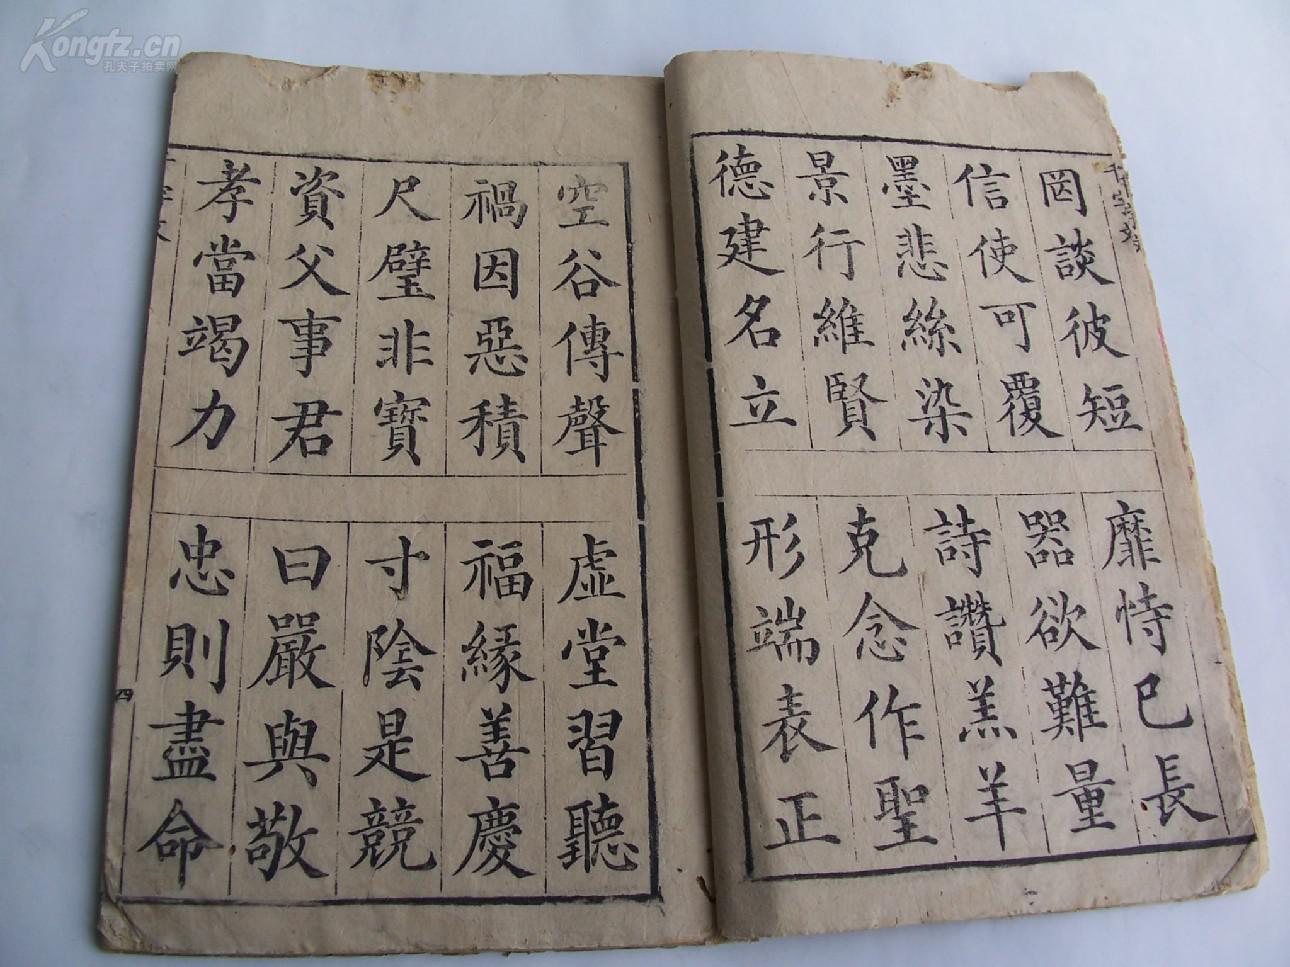 Kongfz.cn
孔夫子拍卖网
千字文
罔談彼短
靡恃己長
信使可覆
器欲難量
墨悲絲染
詩讚羔羊
景行維賢
克念作聖
德建名立
形端表正
空谷傳聲
虛堂習聽
禍因惡積
福緣善慶
尺璧非寶
寸陰是競
資父事君
曰嚴與敬
孝當竭力
忠則盡命
四